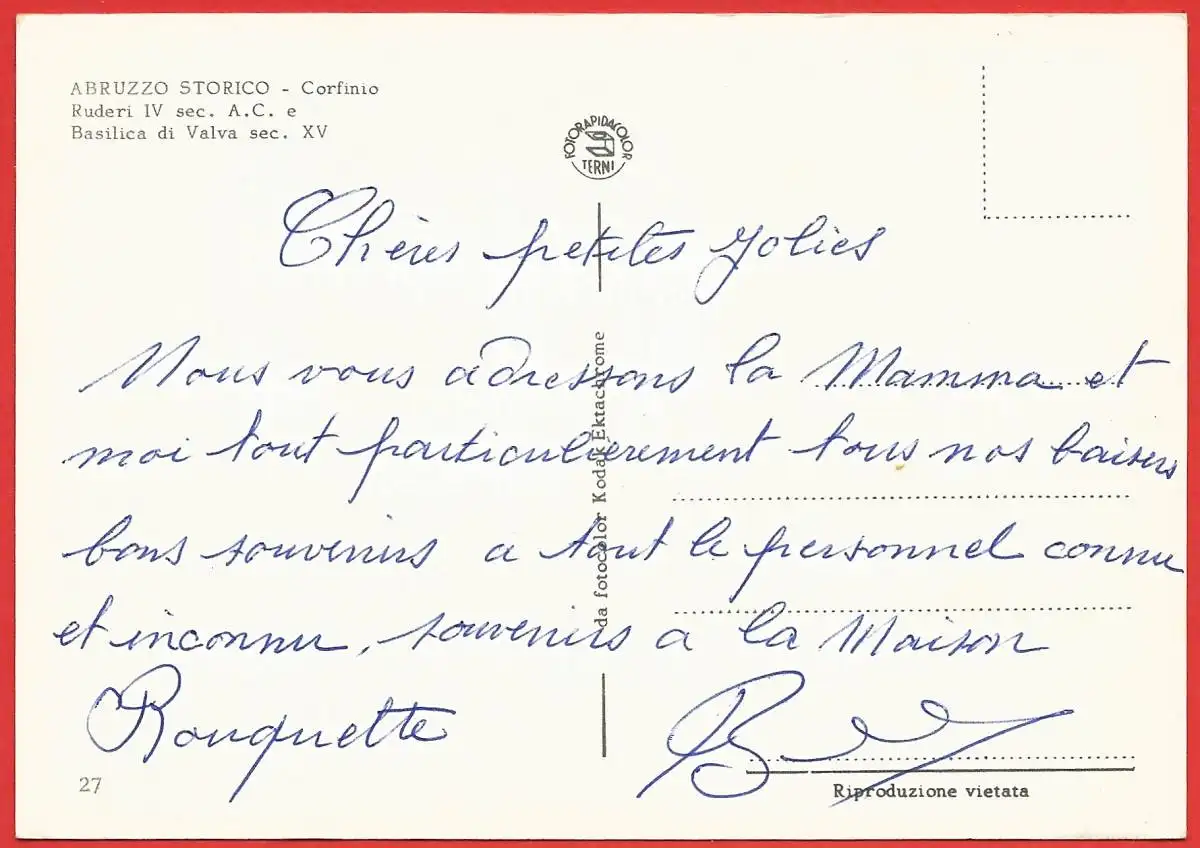 ABRUZZO STORICO - Corfinio
Ruderi IV sec. A.C. e
Basilica di Valva sec. XV
FOTORAPIDACOLOR
TERNI
Chères petites Jolies
Nous vous adressons la Mamma et
moi tout particulièrement tous nos baisers
bons souvenirs a tout le personnel connu
et inconnu, souvenirs a la Maison
Rouquette
da fotocolor Kodak Ektachrome
27
Riproduzione vietata